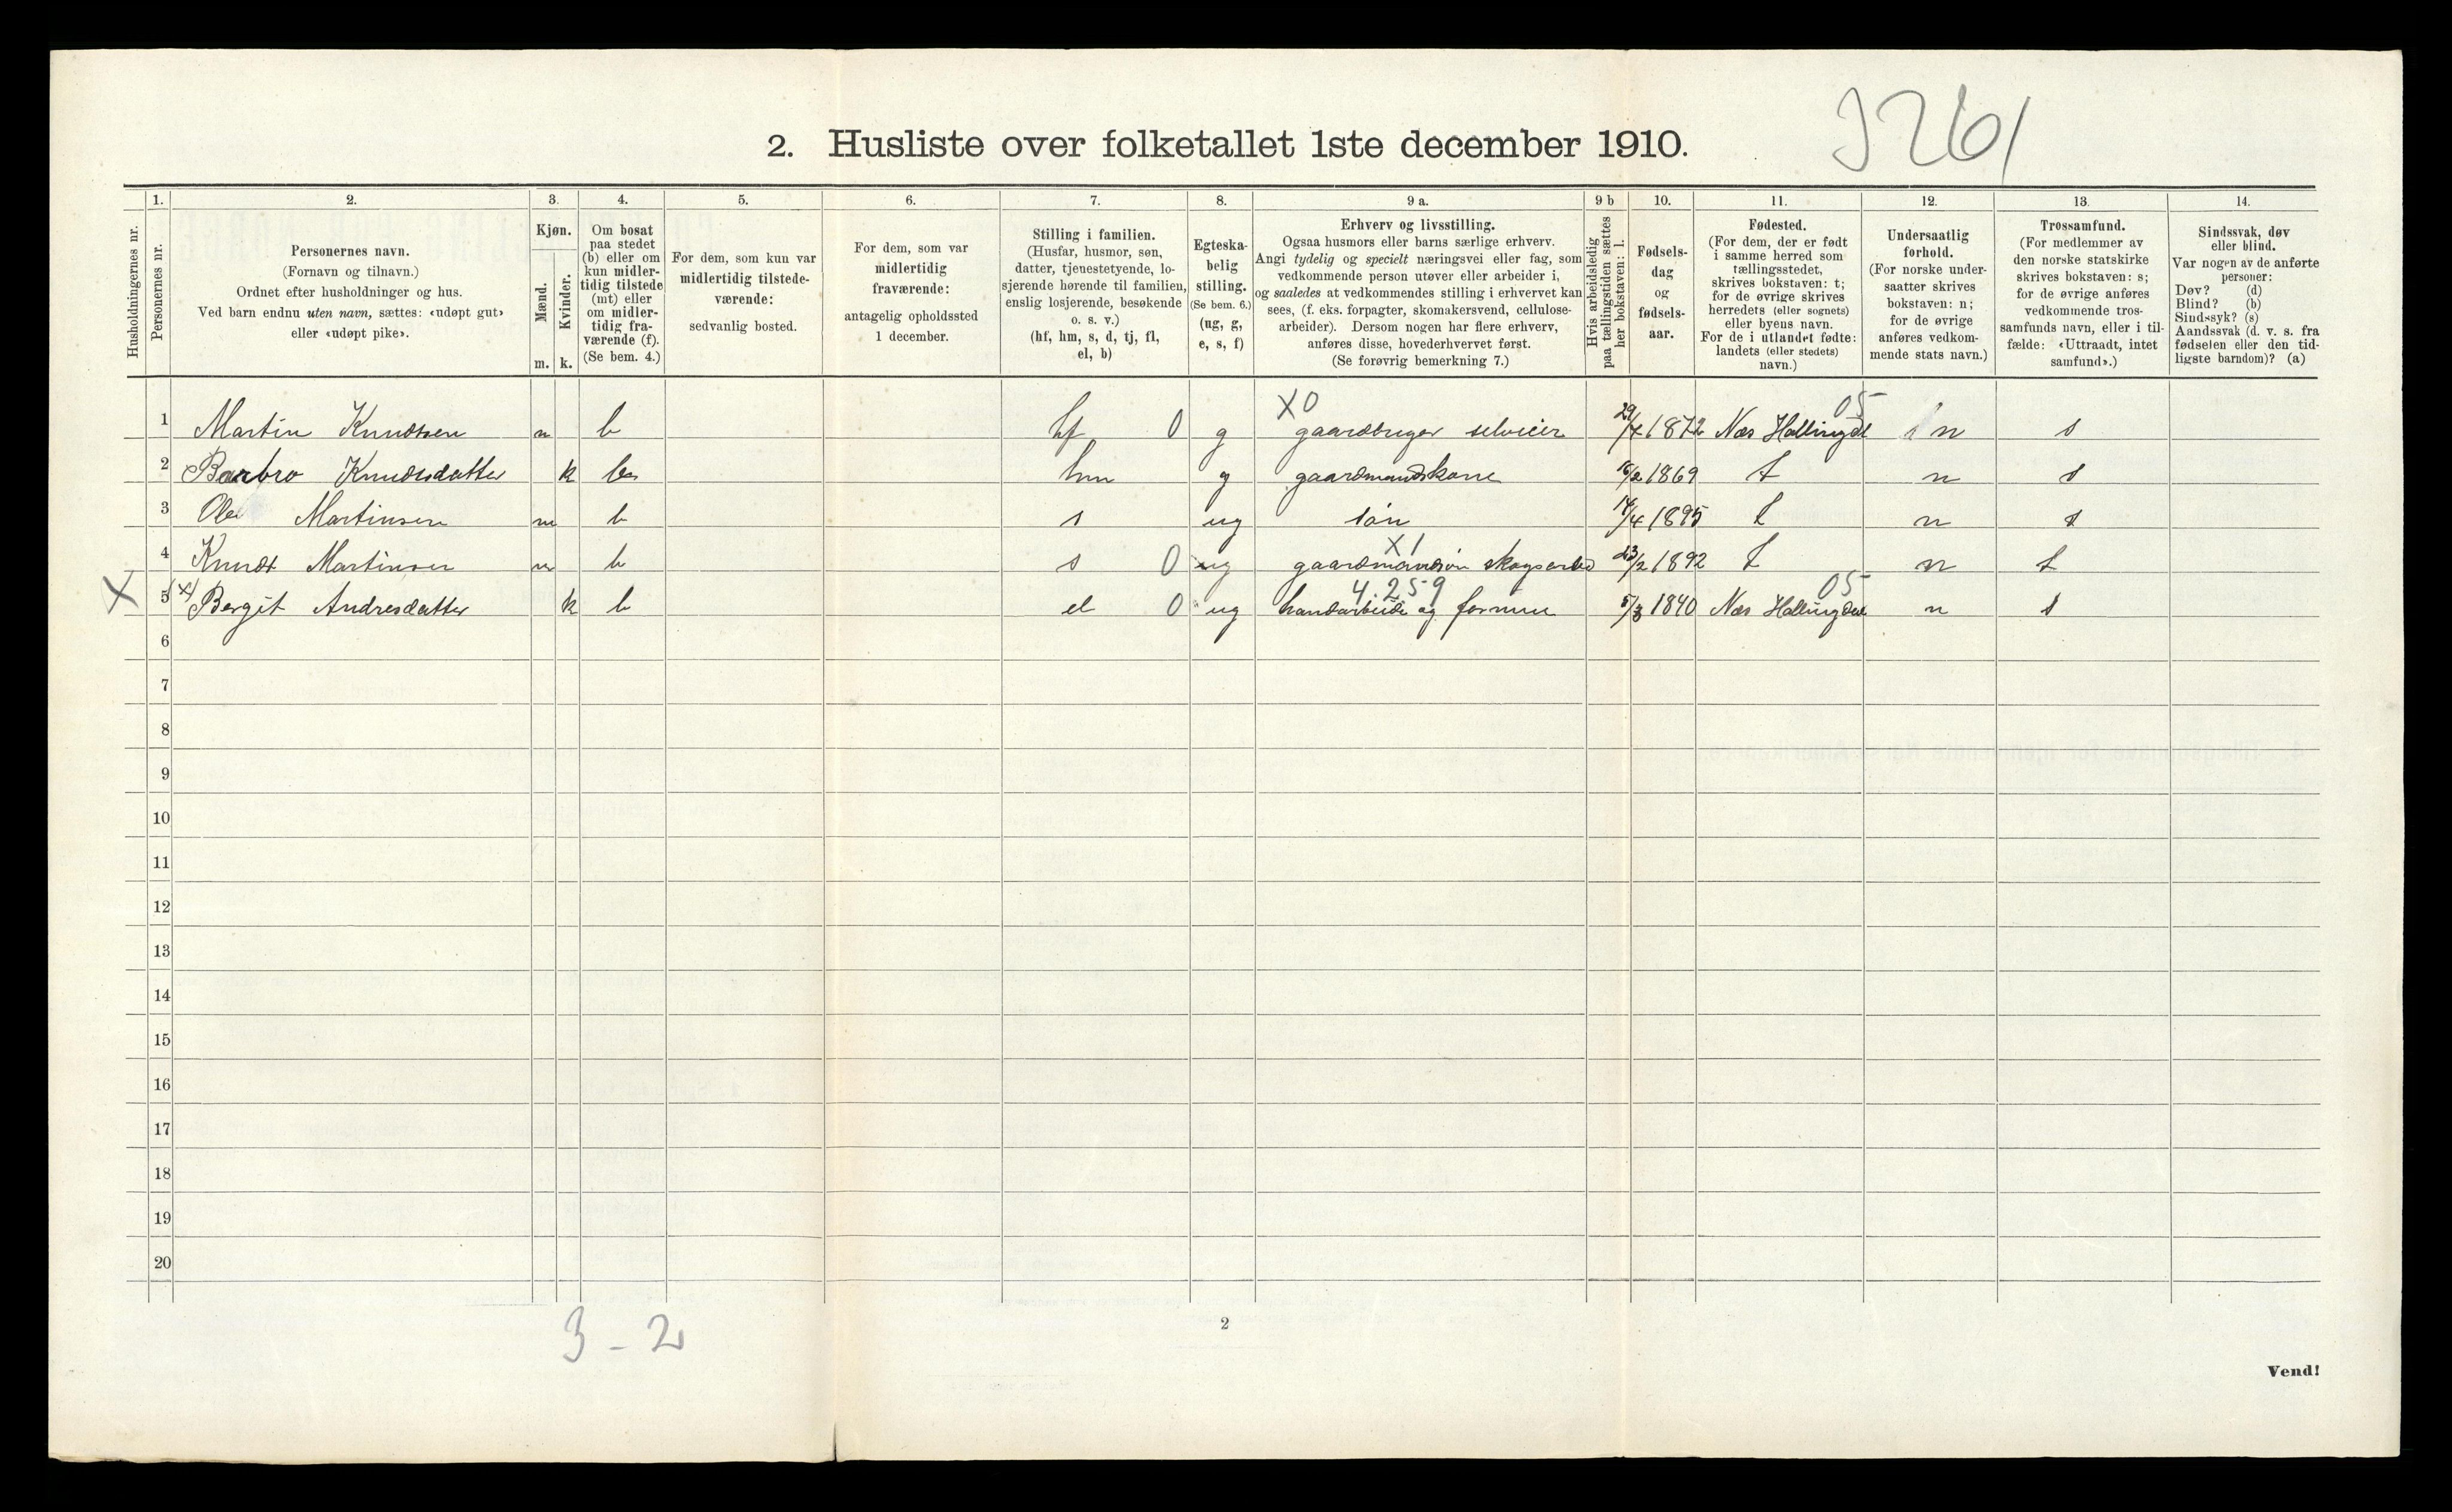 3261
2. Husliste over folketallet 1ste december 1910.
Husholdningernes nr.
1. Personernes nr.
2. Personernes navn. (Fornavn og tilnavn.) Ordnet efter husholdninger og hus. Ved barn endnu uten navn, sættes: «udøpt gut» eller «udøpt pike».
3. Kjøn. Mænd. m. Kvinder. k.
4. Om bosat paa stedet (b) eller om kun midlertidig tilstede (mt) eller om midlertidig fraværende (f). (Se bem. 4.)
5. For dem, som kun var midlertidig tilstedeværende: sedvanlig bosted.
6. For dem, som var midlertidig fraværende: antagelig opholdssted 1 december.
7. Stilling i familien. (Husfar, husmor, søn, datter, tjenestetyende, losjerende hørende til familien, enslig losjerende, besøkende o. s. v.) (hf, hm, s, d, tj, fl, el, b)
8. Egteskabelig stilling. (Se bem. 6.) (ug, g, e, s, f)
9 a. Erhverv og livsstilling. Ogsaa husmors eller barns særlige erhverv. Angi tydelig og specielt næringsvei eller fag, som vedkommende person utøver eller arbeider i, og saaledes at vedkommendes stilling i erhvervet kan sees, (f. eks. forpagter, skomakersvend, cellulosearbeider). Dersom nogen har flere erhverv, anføres disse, hovederhvervet først. (Se forøvrig bemerkning 7.)
9 b Hvis arbeidsledig paa tællingstiden sættes her bokstaven: l.
10. Fødselsdag og fødselsaar.
11. Fødested. (For dem, der er født i samme herred som tællingsstedet, skrives bokstaven: t; for de øvrige skrives herredets (eller sognets) eller byens navn. For de i utlandet fødte: landets (eller stedets) navn.)
12. Undersaatlig forhold. (For norske undersaatter skrives bokstaven: n; for de øvrige anføres vedkommende stats navn.)
13. Trossamfund. (For medlemmer av den norske statskirke skrives bokstaven: s; for de øvrige anføres vedkommende trossamfunds navn, eller i tilfælde: «Uttraadt, intet samfund».)
14. Sindssvak, døv eller blind. Var nogen av de anførte personer: Døv? (d) Blind? (b) Sindssyk? (s) Aandssvak (d. v. s. fra fødselen eller den tidligste barndom)? (a)
X0 05
1 Martin Knudtsen m b hf 0 g gaardbruger selveier 29/4 1872 Næs Hallingdl n s
2 Barbro Knudsdatter k b hm g gaardmandskone 16/2 1869 t n s
3 Ole Martinsen m b s ug søn 14/4 1895 t n s
X1
4 Knudt Martinsen m b s 0 ug gaardmandsøn skogsarbd 23/2 1892 t n s
4.259 05
X 5 x) Bergit Andresdatter k b el 0 ug handarbeide og formue 5/3 1840 Næs Hallingdal n s
6
7
8
9
10
11
12
13
14
15
16
17
18
19
20
3 - 2
2
Vend!